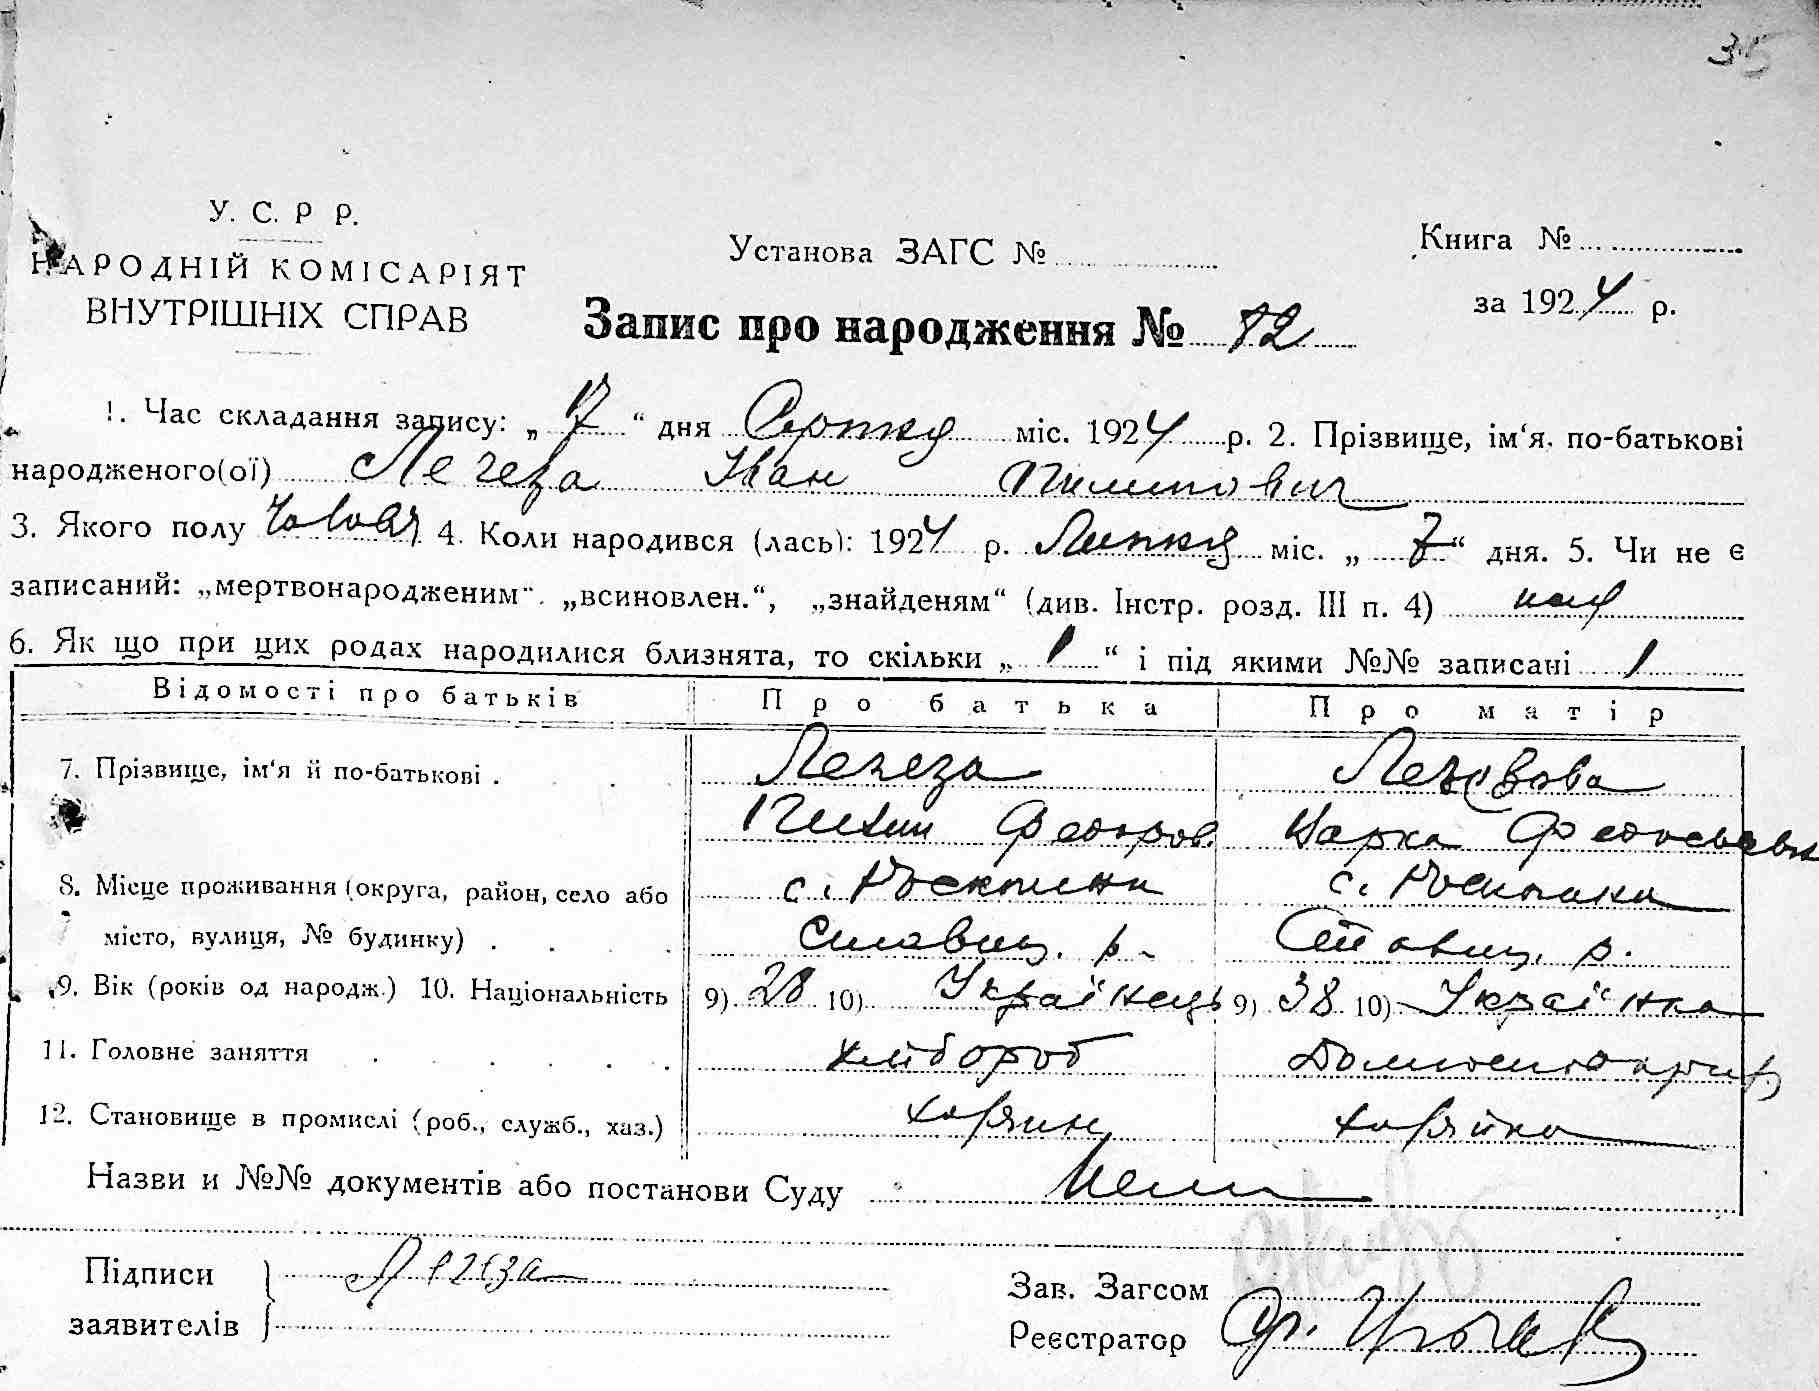 35
У. С. Р Р.
НАРОДНІЙ КОМІСАРІЯТ
ВНУТРІШНІХ СПРАВ
Установа ЗАГС №
Книга №
за 1924 р.
Запис про народження № 12
1. Час складання запису: „ 17 “ дня Серпня міс. 1924 р. 2. Прізвище, ім‘я, по-батькові
народженого(ої) Легеза Іван Пилипович
3. Якого полу 4. Коли народився (лась): 1924 р. Липня міс. „ 7 “ дня. 5. Чи не є
записаний: „мертвонародженим“. „всиновлен.“, „знайденям“ (див. Інстр. розд. III п. 4)
6. Як що при цих родах народилися близнята, то скільки „ 1 “ і під якими №№ записані 1
Відомості про батьків Про батька Про матір
7. Прізвище, ім‘я й по-батькові . Легеза
Федоров. Марка
8. Місце проживання (округа, район, село або с. с.
місто, вулиця, № будинку) . Ставищ. р. Ставищ. р.
9. Вік (років од народж.) 10. Національність 9) 28 10) Українець 9) 38 10) Українка
11. Головне заняття хлібороб
12. Становище в промислі (роб., служб., хаз.) хазяин хазяйка
Назви и №№ документів або постанови Суду
Підписи Легеза
заявителів
Зав. Загсом
Реєстратор